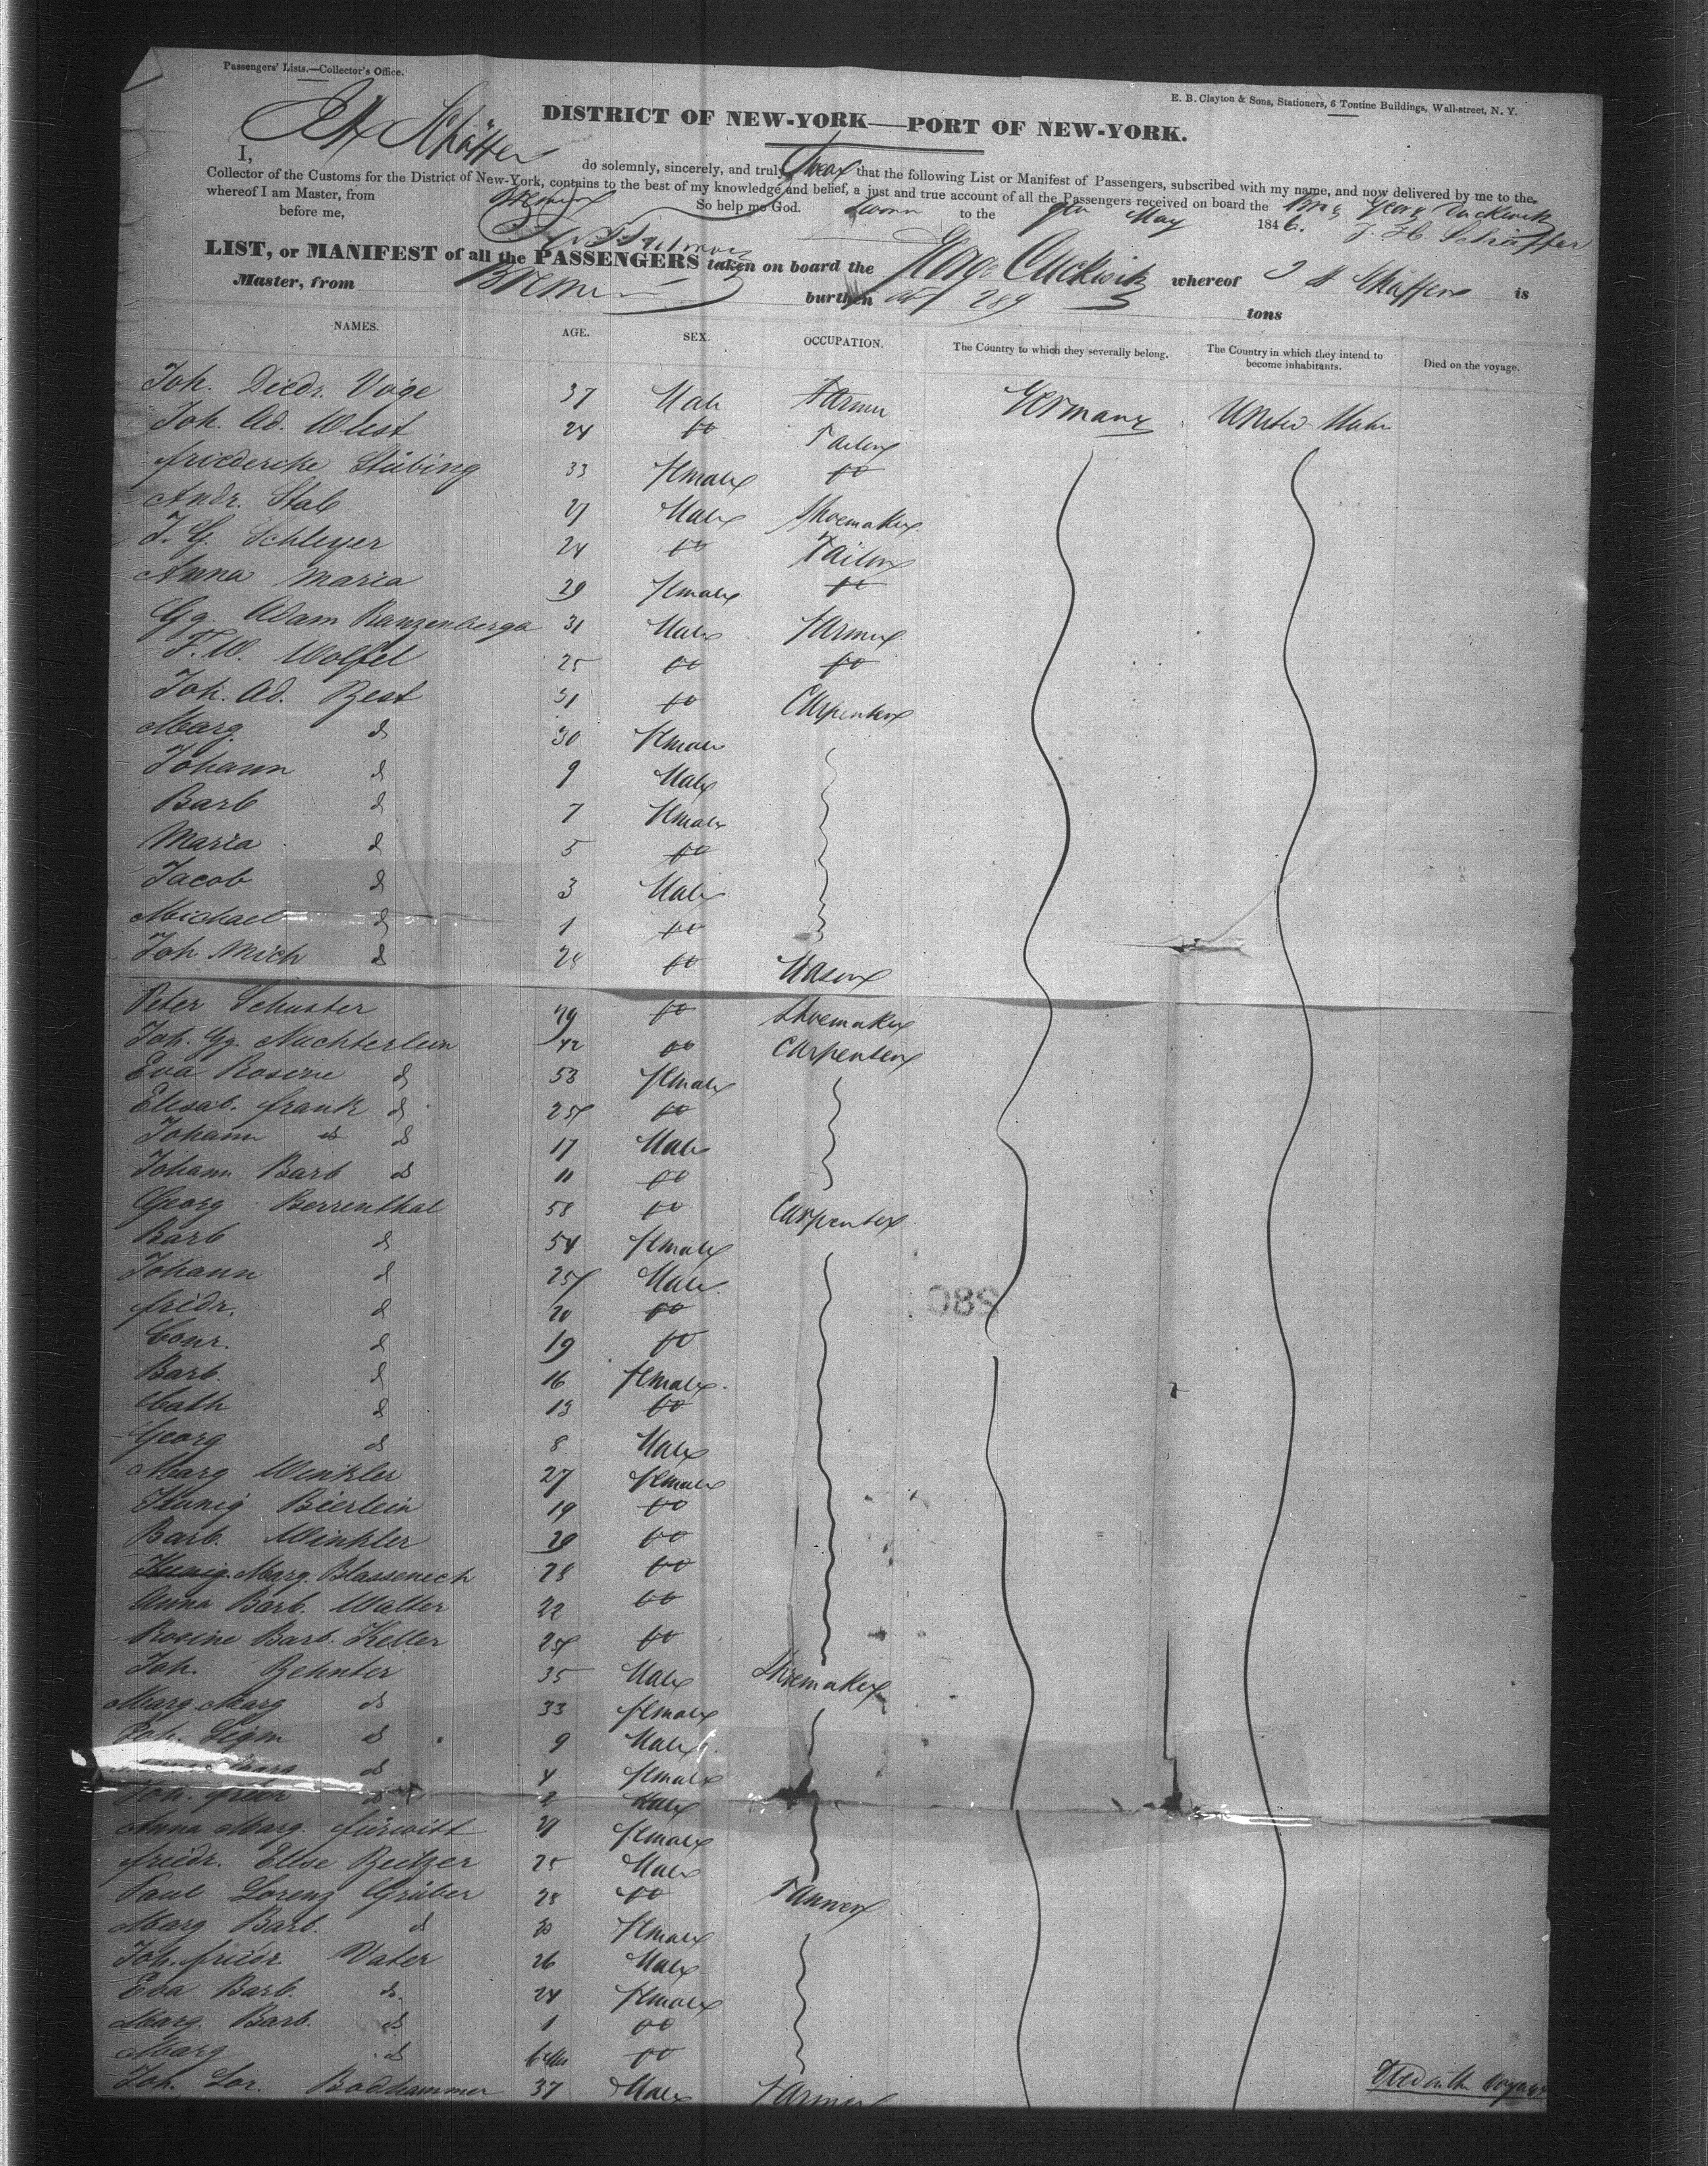 Passengers' Lists.—Collector's Office.
E. B. Clayton & Sons, Stationers, 6 Tontine Buildings, Wall-street, N. Y.
DISTRICT OF NEW-YORK—PORT OF NEW-YORK.
I, Schäffer do solemnly, sincerely, and truly swear that the following List or Manifest of Passengers, subscribed with my name, and now delivered by me to the
Collector of the Customs for the District of New-York, contains to the best of my knowledge and belief, a just and true account of all the Passengers received on board the Brig George Duckwitz
whereof I am Master, from Bremen So help me God. Sworn to the 9th May 1846. J. H. Schäffer
before me,
LIST, or MANIFEST of all the PASSENGERS taken on board the George Duckwitz whereof J H Schäffer is
Master, from Bremen burthen 289 tons
NAMES. AGE. SEX. OCCUPATION. The Country to which they severally belong. The Country in which they intend to become inhabitants. Died on the voyage.
Joh. Diedr. Vöge 37 Male Farmer Germany United States
Joh. Ad. Wüst 24 do Tailor
Friedericke Stübing 33 Female do
Andr. Stab 27 Male Shoemaker
J. G. Schleyer 24 do Tailor
Anna Maria 29 Female do
Gg. Adam Ranzenberga 31 Male Farmer
F. W. Wolfel 25 do do
Joh. Ad. Best 31 do Carpenter
Marg. d 30 Female
Johann d 9 Male
Barb d 7 Female
Maria d 5 do
Jacob d 3 Male
Michael d 1 do
Joh Mich d 28 do Mason
Peter Schuster 49 do Shoemaker
Joh. Gg. Nuchterlein 42 do Carpenter
Eva Rosine d 53 Female
Elisab. Frank d 25 do
Johann do d 17 Male
Johann Barb d 11 do
Georg Berrenthal 58 do Carpenter
Barb d 54 Female
Johann d 25 Male
Fridr. d 20 do
Conr. d 19 do
Barb. d 16 Female
Cath d 13 do
Georg d 8 Male
Marg Winkler 27 Female
Kunig Bierlein 19 do
Barb. Winkler 29 do
Kunig. Marg. Blassenech 28 do
Anna Barb. Walter 22 do
Rosine Barb. Keller 25 do
Joh. Zehnter 35 Male Shoemaker
Marg. Marg d 33 Female
Joh. Sigm d 9 Male
Marg d 4 Female
Joh. d 2 Male
Anna Marg. Fürwitt 27 Female
Friedr. Elise Beitzer 25 Male
Paul Lorenz Grüber 28 do Tanner
Marg Barb. d 30 Female
Joh. Friedr. Vater 26 Male
Eva Barb. d. 24 Female
Marg. Barb. d 1 do
Marg d do
Joh. Lor. Bodhammer 37 Male Farmer Died on the voyage